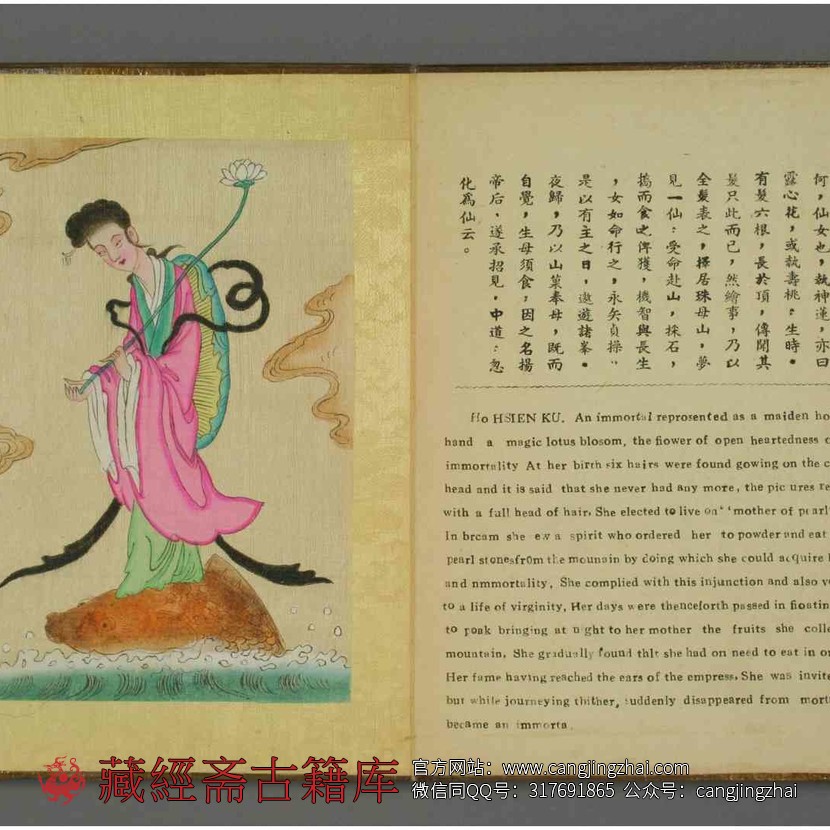 何，仙女也，執神蓮，亦曰
露心花，或執壽桃。生時，
有髮六根，長於頂，傳聞其
髮只此而已，然繪事，乃以
全髮表之，擇居珠母山，夢
見一仙：受命赴山，採石，
搗而食之俾獲，機智與長生
，女如命行之，永矢貞操。
是以有主之日，遨遊諸峯。
夜歸，乃以山菓奉母，既而
自覺，生母須食，因之名揚
帝后，遂承招見，中道：忽
化為仙云。
Ho HSIEN KU. An immortal reprosented as a maiden ho
hand a magic lotus blosom, the flower of open heartedness o
immortality At her birth six hairs were found gowing on the c
head and it is said that she never had any more, the pic ures re
with a full head of hair. She elected to live on" 'mother of pearl
In brcam she ew a spirit who ordered her to powder and eat
pearl stonesfr0m the mounain by doing which she could acquire
and nmmortality, She complied with this injunction and also v
to a life of virginity. Her days were thenceforth passed in floatin
to poak bringing at night to her mother the fruits she colle
mountain. She gradually found thlt she had on need to eat in or
Her fame having reached the ears of the empress. She was invite
but while journeying thither, suddenly disappeared from mort
became an immorta
藏經斋古籍库
官方网站：www.cangjingzhai.com
微信同QQ号：317691865 公众号：cangjingzhai